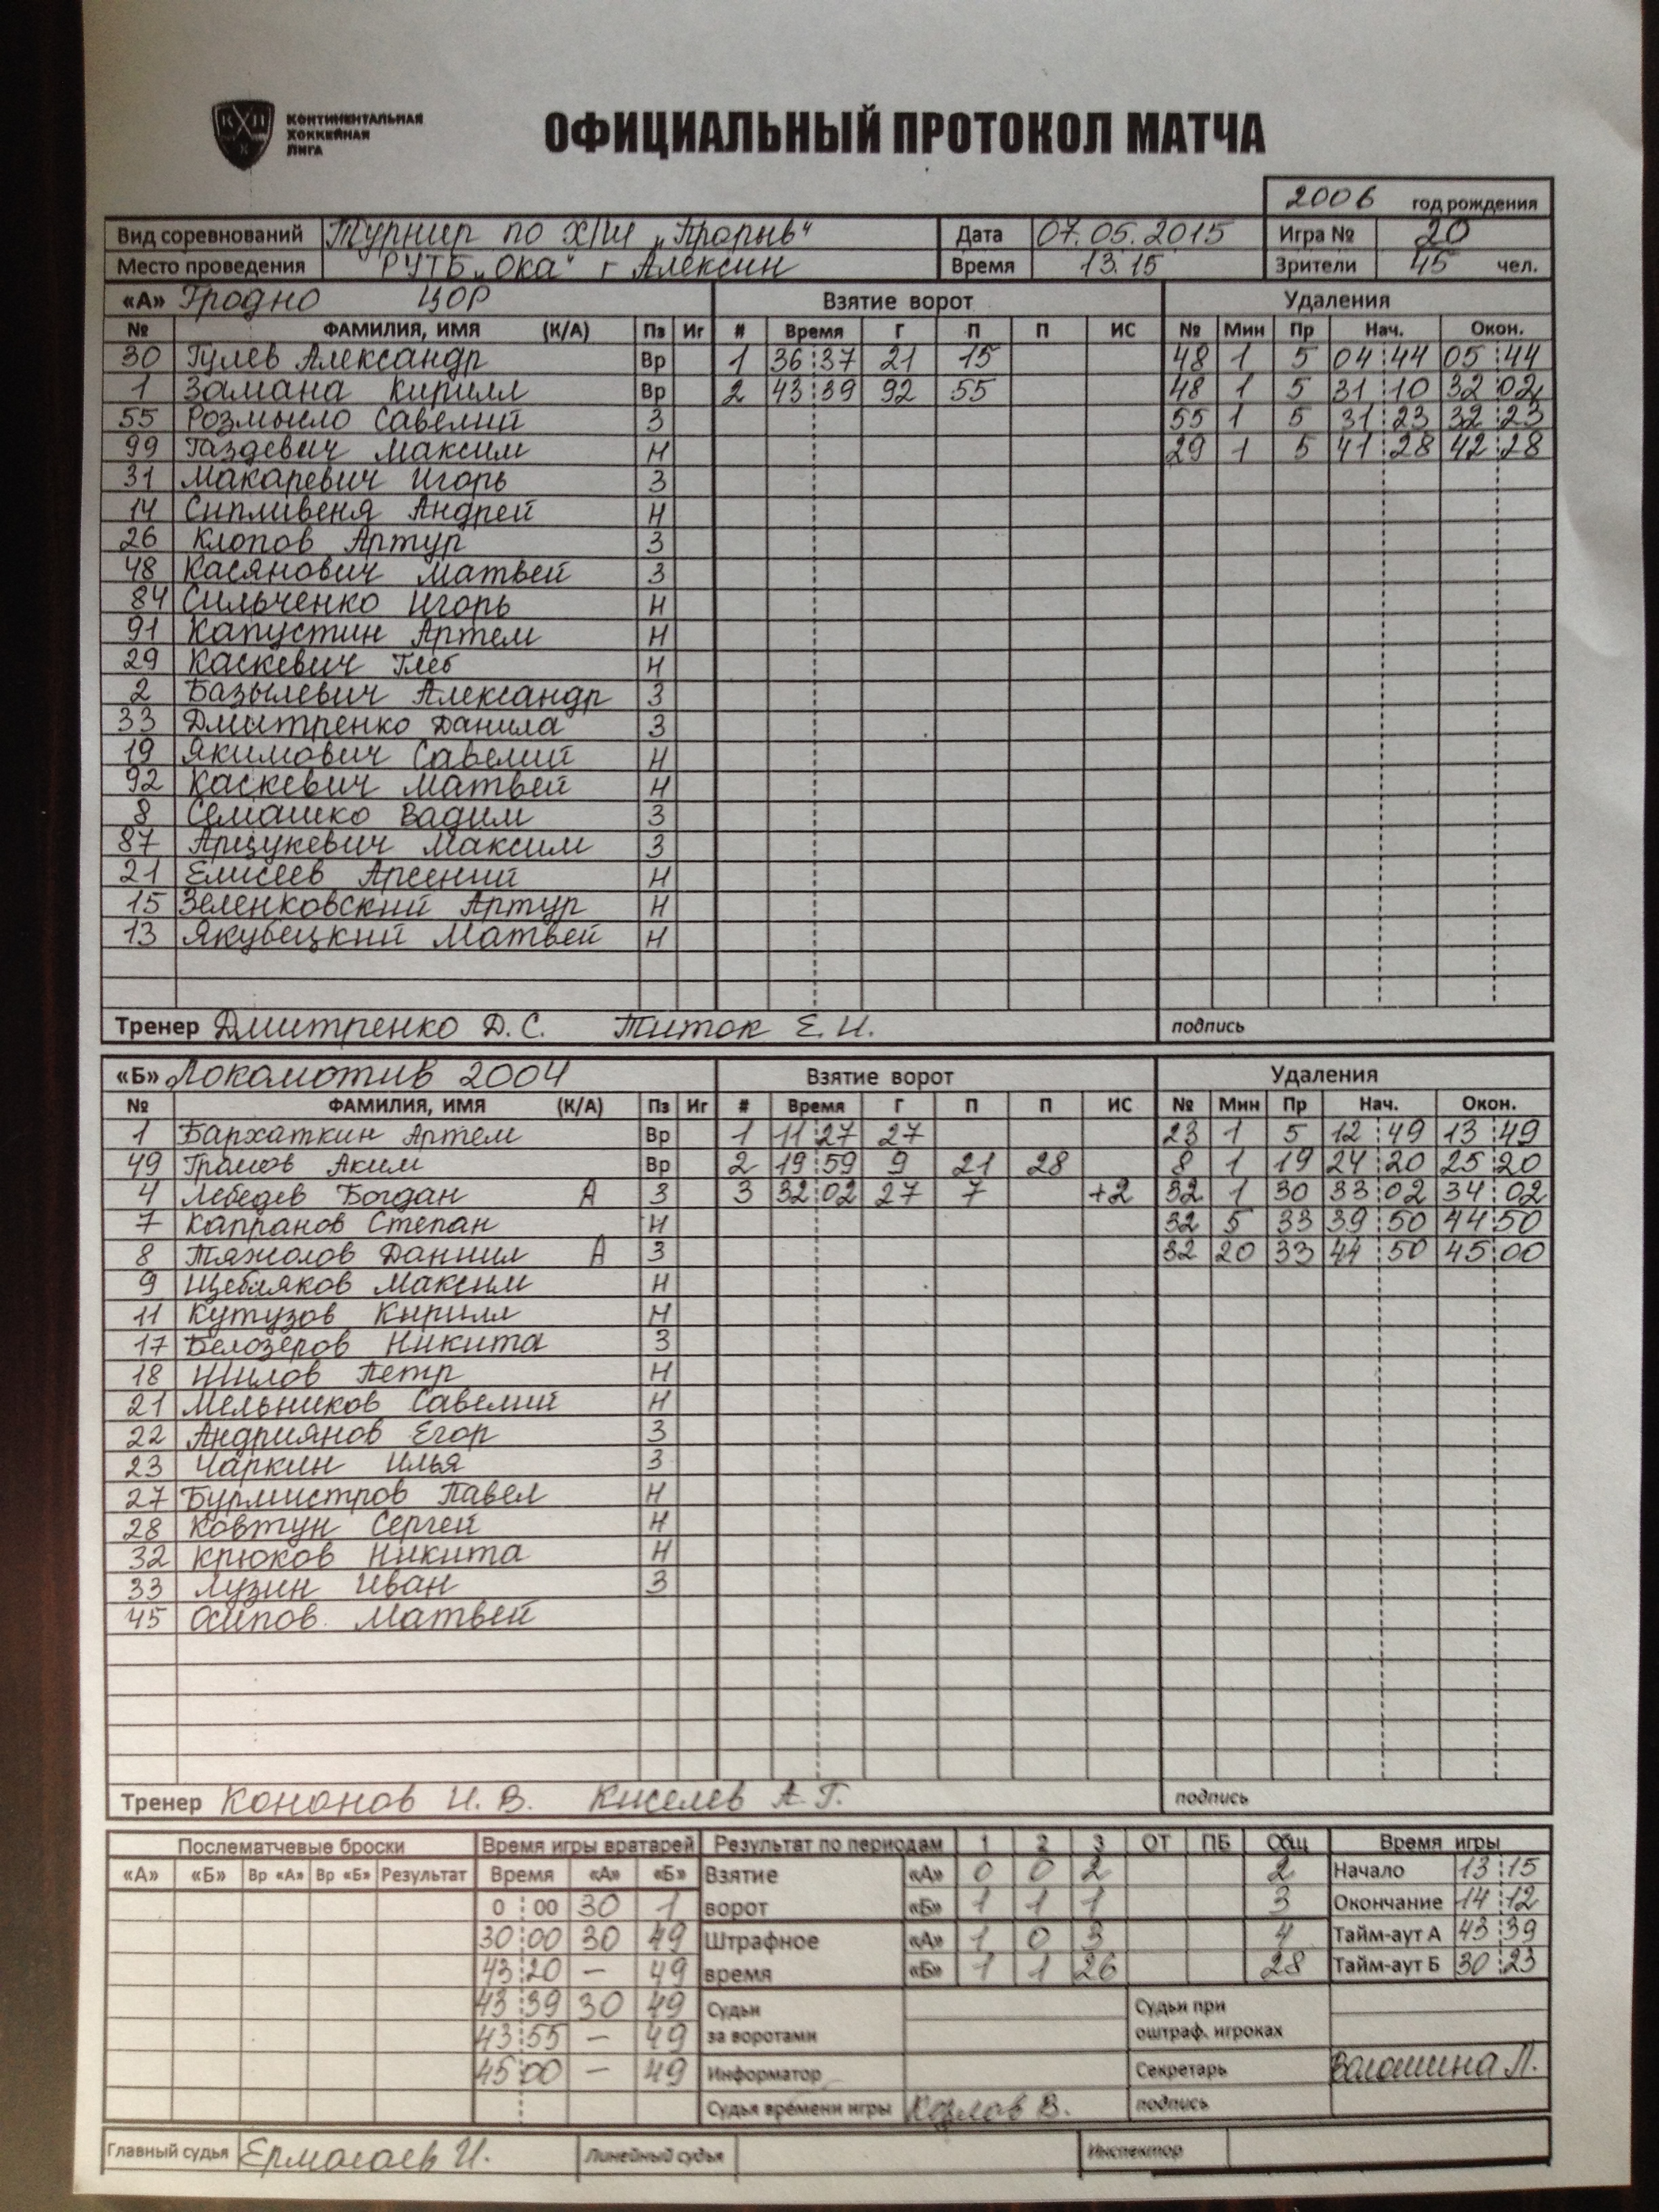 КОНТИНЕНТАЛЬНАЯ
ХОККЕЙНАЯ
ЛИГА
ОФИЦИАЛЬНЫЙ ПРОТОКОЛ МАТЧА
2006 год рождения
Вид соревнований Турнир по х/ш „Прорыв“ Дата 07.05.2015 Игра № 20
Место проведения РУТБ „Ока“ г Алексин Время 13.15 Зрители 45 чел.
«А» Гродно ЦОР Взятие ворот Удаления
№ ФАМИЛИЯ, ИМЯ (К/А) Пз Иг # Время Г П П ИС № Мин Пр Нач. Окон.
30 Гулев Александр Вр 1 36:37 21 15 48 1 5 04:44 05:44
1 Замана Кирилл Вр 2 43:39 92 55 48 1 5 31:10 32:02
55 Розмысло Савелий З 55 1 5 31:23 32:23
99 Газдевич Максим Н 29 1 5 41:28 42:28
31 Макаревич Игорь З
14 Сипливеня Андрей Н
26 Клопов Артур З
48 Касянович Матвей З
84 Сильченко Игорь Н
91 Капустин Артем Н
29 Каскевич Глеб Н
2 Базылевич Александр З
33 Дмитренко Данила З
19 Якимович Савелий Н
92 Каскевич Матвей Н
8 Семашко Вадим З
87 Арцукевич Максим З
21 Елисеев Арсений Н
15 Зеленковский Артур Н
13 Якубецкий Матвей Н
Тренер Дмитренко Д.С. Титок Е.И. подпись
«Б» Локомотив 2004 Взятие ворот Удаления
№ ФАМИЛИЯ, ИМЯ (К/А) Пз Иг # Время Г П П ИС № Мин Пр Нач. Окон.
1 Бархаткин Артем Вр 1 11:27 27 23 1 5 12:49 13:49
49 Громов Аким Вр 2 19:59 9 21 28 8 1 19 24:20 25:20
4 Лебедев Богдан А З 3 32:02 27 7 +2 32 1 30 33:02 34:02
7 Капранов Степан Н 32 5 33 39:50 44:50
8 Тяжолов Даниил А З 32 20 33 44:50 45:00
9 Щебляков Максим Н
11 Кутузов Кирилл Н
17 Белозеров Никита З
18 Шилов Петр Н
21 Мельников Савелий Н
22 Андриянов Егор З
23 Чаркин Илья З
27 Бурмистров Павел Н
28 Ковтун Сергей Н
32 Крюков Никита Н
33 Лузин Иван З
45 Осипов Матвей
Тренер Кононов И.В. Киселев А.Г. подпись
Послематчевые броски Время игры вратарей Результат по периодам 1 2 3 ОТ ПБ Общ Время игры
«А» «Б» Вр «А» Вр «Б» Результат Время «А» «Б» Взятие «А» 0 0 2 2 Начало 13:15
0:00 30 1 ворот «Б» 1 1 1 3 Окончание 14:12
30:00 30 49 Штрафное «А» 1 0 3 4 Тайм-аут А 43:39
43:20 – 49 время «Б» 1 1 26 28 Тайм-аут Б 30:23
43:39 30 49 Судьи Судьи при
43:55 – 49 за воротами оштраф. игроках
45:00 – 49 Информатор Секретарь Волошина Л.
Судья времени игры Козлов В. подпись
Главный судья Ермолаев И. Линейный судья Инспектор